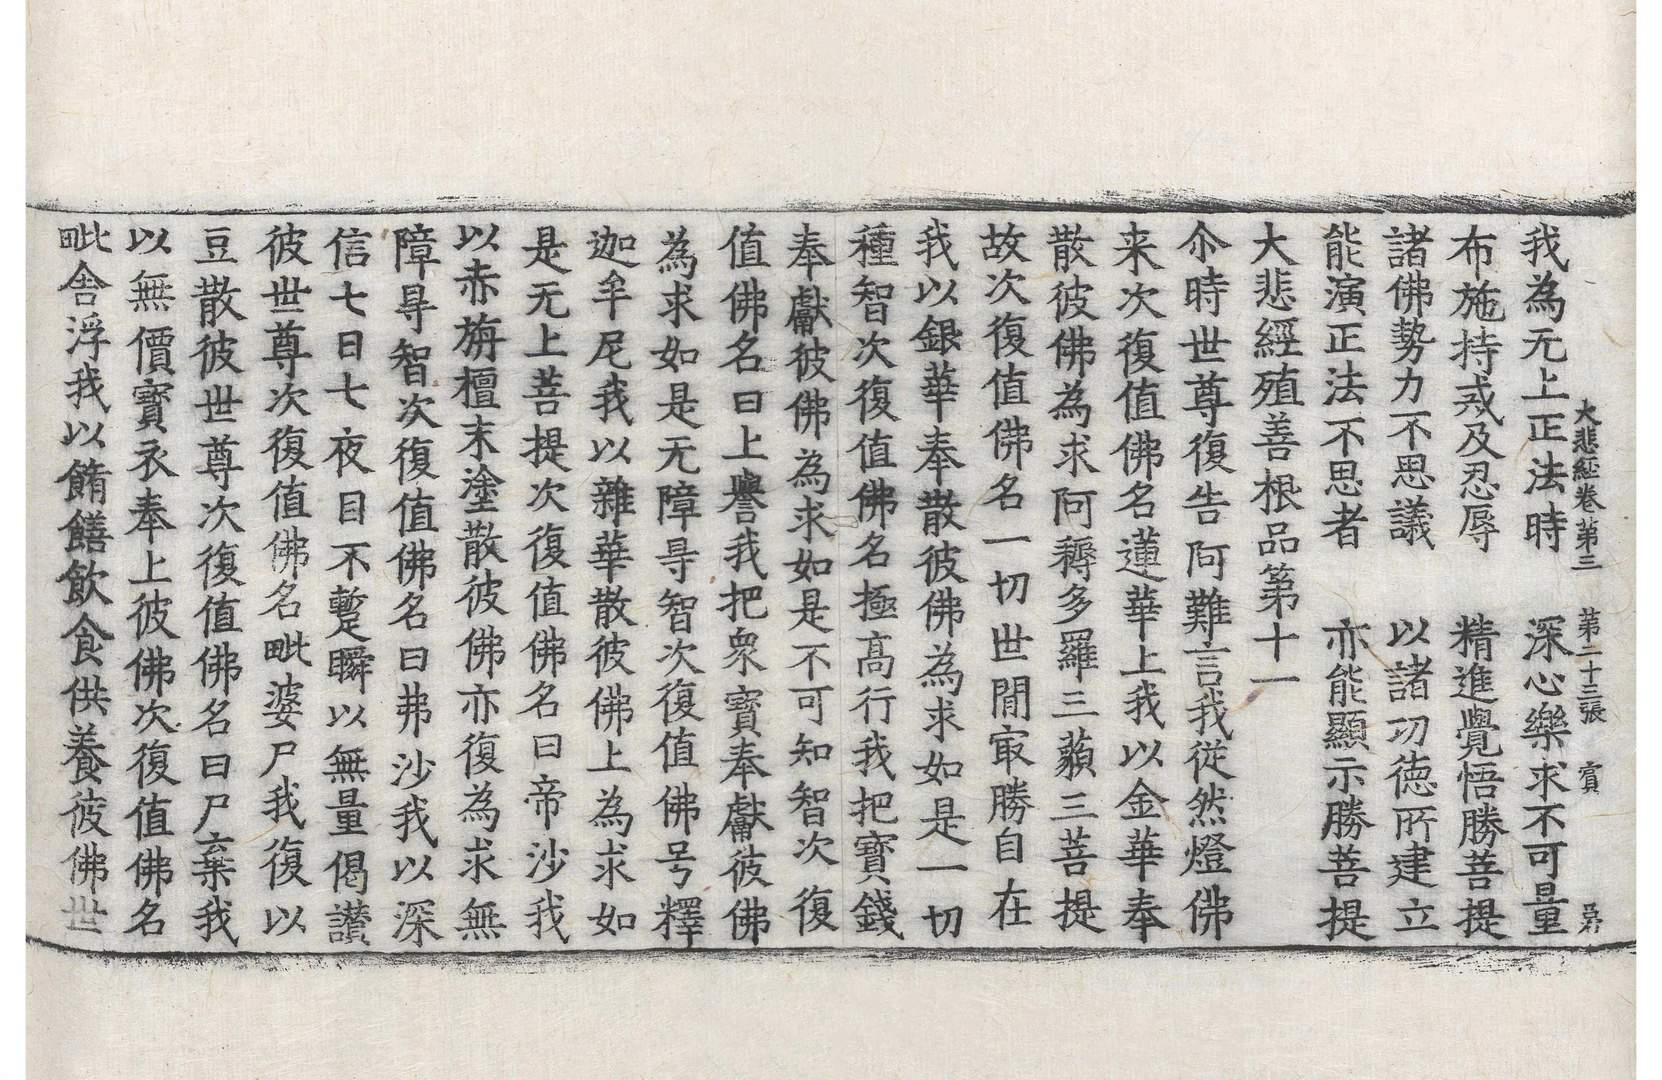 大悲經卷第三　第二十三張　賓
我為无上正法時　深心樂求不可量
布施持戒及忍辱　精進覺悟勝菩提
諸佛勢力不思議　以諸功徳所建立
能演正法不思者　亦能顯示勝菩提
大悲經殖善根品第十一
尒時世尊復告阿難言我從然燈佛
来次復值佛名蓮華上我以金華奉
散彼佛為求阿耨多羅三藐三菩提
故次復值佛名一切世間㝡勝自在
我以銀華奉散彼佛為求如是一切
種智次復值佛名極高行我把寶錢
奉獻彼佛為求如是不可知智次復
值佛名曰上譽我把衆寶奉獻彼佛
為求如是无障㝵智次復值佛号釋
迦牟尼我以雜華散彼佛上為求如
是无上菩提次復值佛名曰帝沙我
以赤旃檀末塗散彼佛亦復為求無
障㝵智次復值佛名曰弗沙我以深
信七日七夜目不暫瞬以無量偈讃
彼世尊次復值佛名毗婆尸我復以
豆散彼世尊次復值佛名曰尸棄我
以無價寶衣奉上彼佛次復值佛名
毗舍浮我以餚饍飲食供養彼佛世